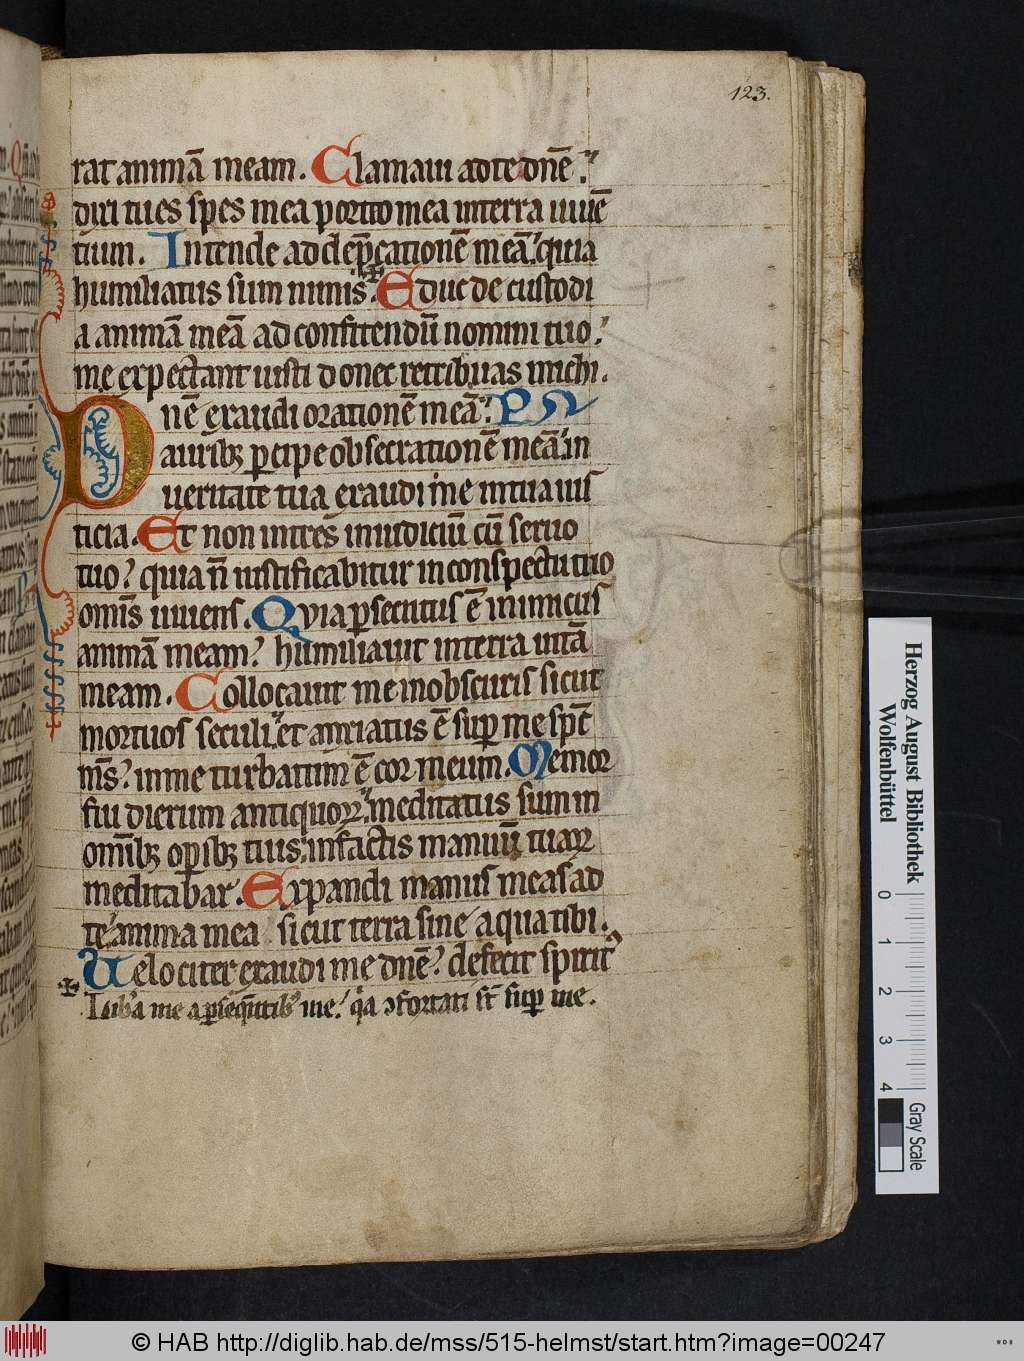 123.
rat animā meam. Clamaui ad te dn̄e
dixi tu es spes mea portio mea in terra uiuē
tium. Intende ad dep̄cationē meā quia
humiliatus sum nimis. Educ de custodi
a animā meā ad confitendū nomini tuo
me expectant iusti donec retribuas michi.
Dn̄e exaudi orationē meā
aurib; ꝑcipe obsecrationē meā in
ueritate tua exaudi me in tua ius
ticia. Et non intres in iudiciū cū seruo
tuo? quia n̄ iustificabitur in conspectu tuo
omīs uiuens. Quia ꝑsecutus ē inimicus
animā meam? humiliauit in terra uitā
meam. Collocauit me in obscuris sicut
mortuos seculi et anxiatus ē suꝑ me spc̄
ms̄? in me turbatum ē cor meum. Memor
fui dierum antiquoꝝ meditatus sum in
omīb; oꝑib; tuis in factis manuū tuaꝝ
meditabar. Expandi manus meas ad
te anima mea sicut terra sine aqua tibi.
Uelociter exaudi me dn̄e? defecit spirit⁹
Lib'a me a ꝑseq̄ntib' me? q̄a ↄfortati st̄ suꝑ me.
Herzog August Bibliothek
Wolfenbüttel
0 1 2 3 4
Gray Scale
© HAB http://diglib.hab.de/mss/515-helmst/start.htm?image=00247